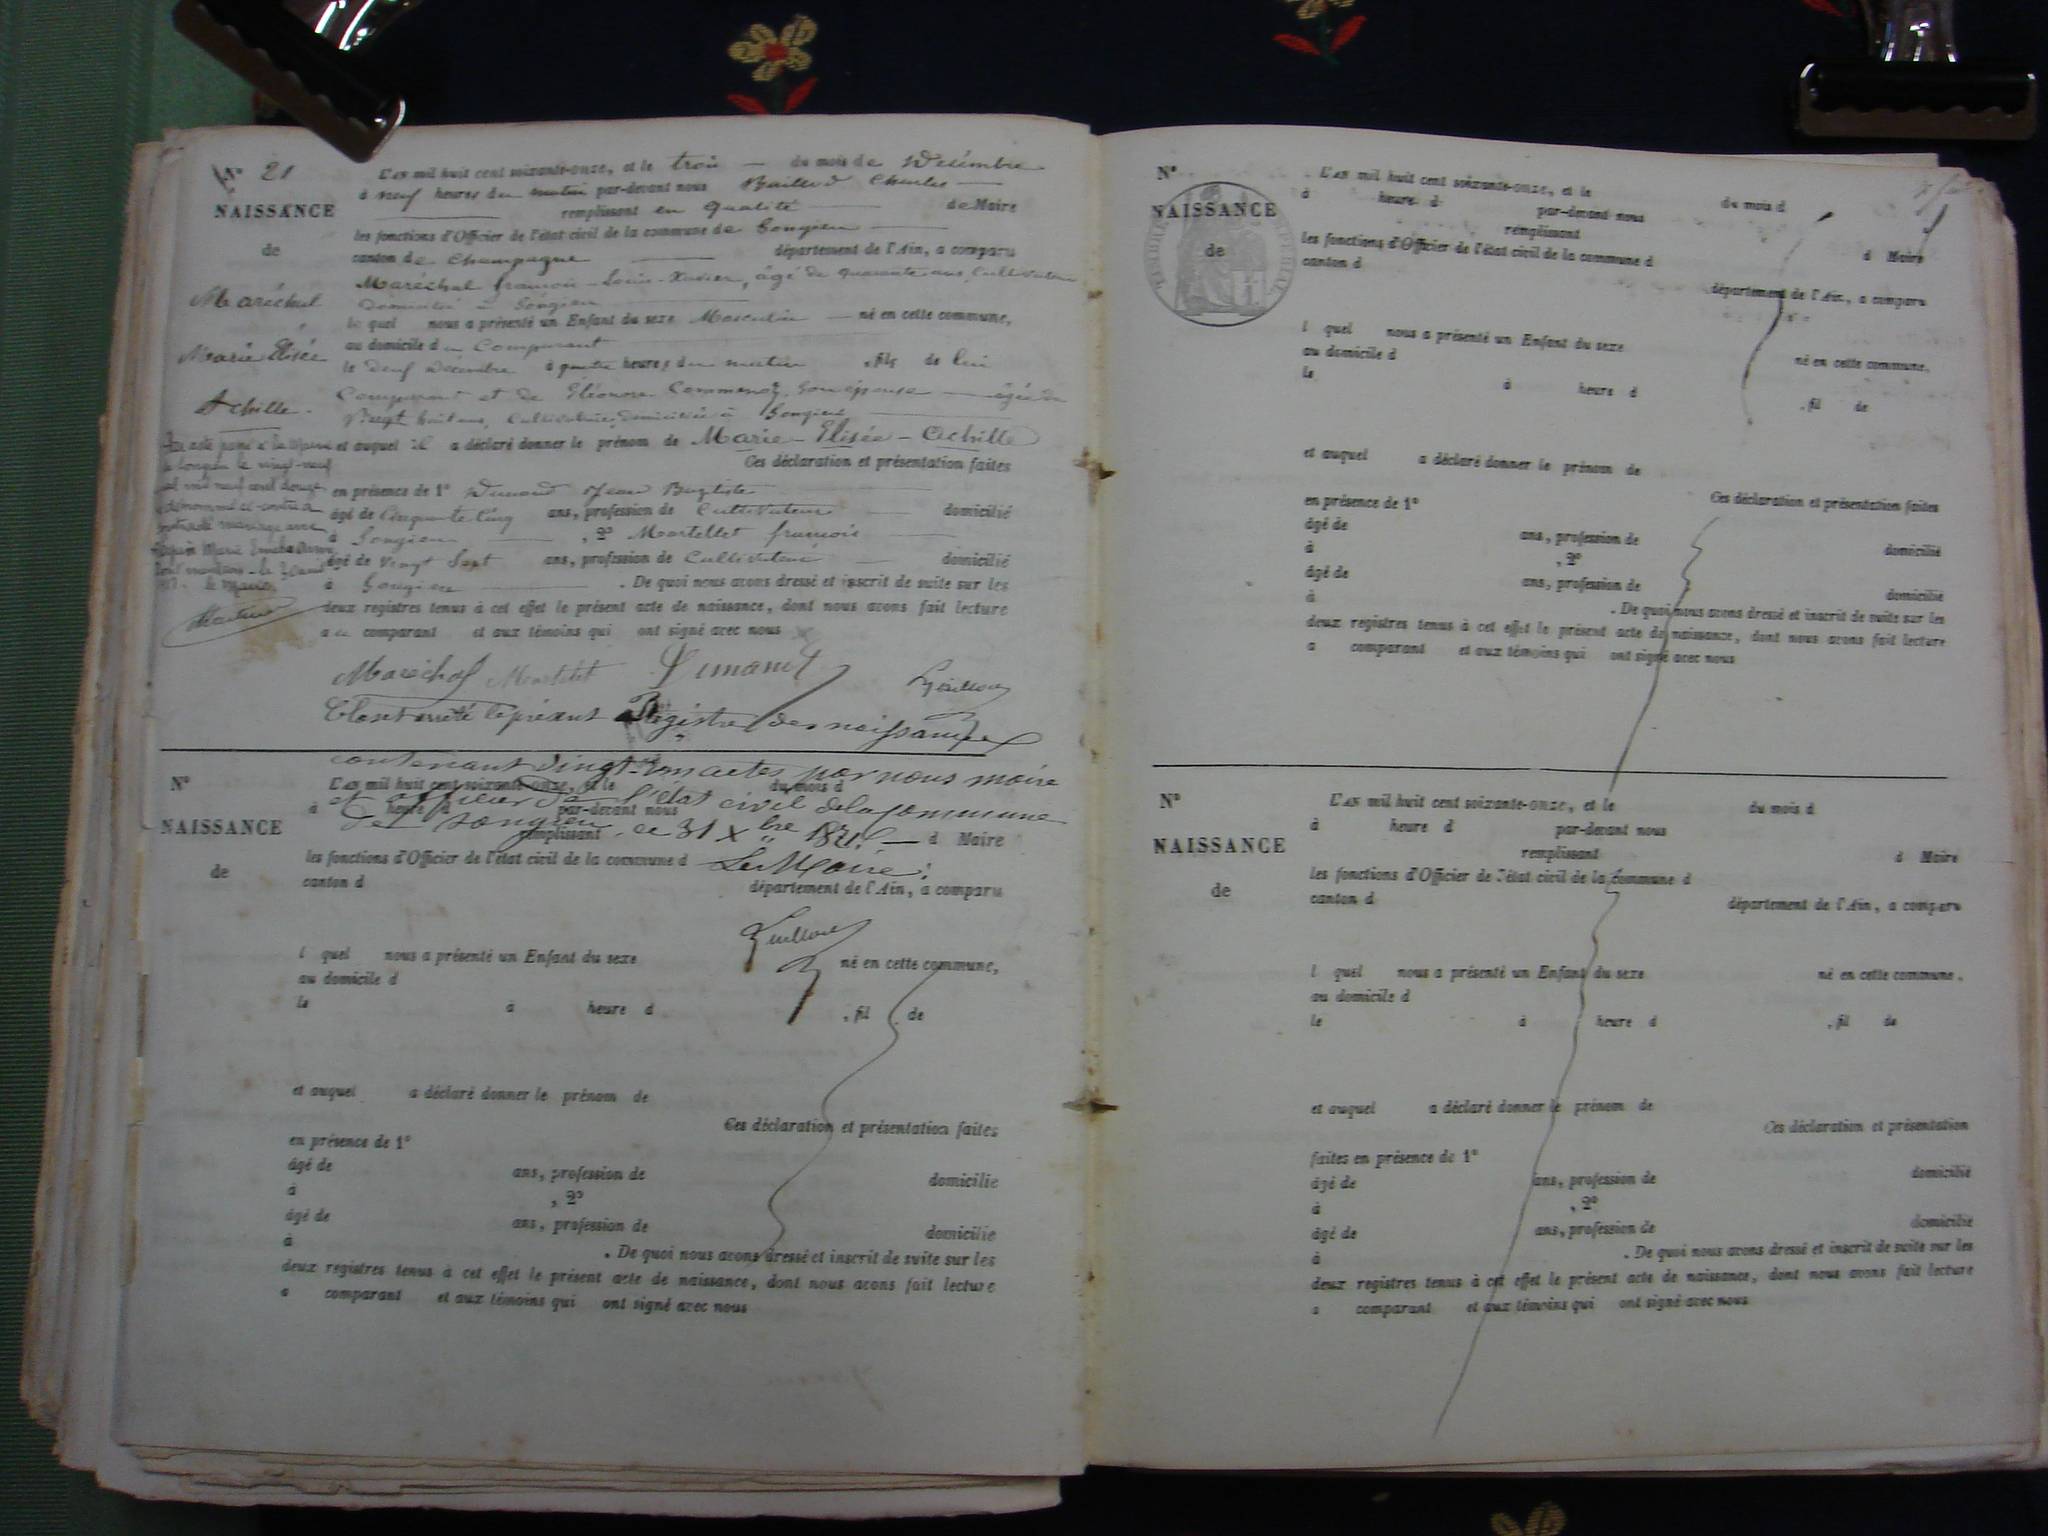 N° 21
NAISSANCE
de
Maréchal
Marie Elisée
Achille.
L'an mil huit cent soixante-onze, et le trois — du mois de Décembre
à neuf heures du matin par-devant nous Charles —
remplissant en qualité — de Maire
les fonctions d'Officier de l'état civil de la commune de Songieu —
canton de Champagne — département de l'Ain, a comparu
Maréchal françois-Louis-Xavier, âgé de quarante ans, Cultivateur
domicilié à Songieu —
lequel nous a présenté un Enfant du sexe Masculin — né en cette commune,
au domicile du Comparant
le deux décembre à quatre heures du matin , fils de lui
Comparant et de Eléonore son épouse — âgée de
Vingt huit ans, Cultivatrice, domiciliée à Songieu —
et auquel il a déclaré donner le prénom de Marie-Elisée-Achille
Ces déclaration et présentation faites
en présence de 1° Dumand Jean Baptiste —
âgé de Cinquante cinq ans, profession de Cultivateur — domicilié
à Songieu — , 2° Martellet françois —
âgé de Vingt Sept ans, profession de Cultivateur — domicilié
à Songieu — . De quoi nous avons dressé et inscrit de suite sur les
deux registres tenus à cet effet le présent acte de naissance, dont nous avons fait lecture
au comparant et aux témoins qui ont signé avec nous
Par acte passé à la Mairie
de Songieu le vingt-neuf
mil neuf cent douze
le dénommé ci-contre a
contracté mariage avec
Marie
Dont mention
le Maire
Maréchal Martelet Dumand
Clos et arrêté le présent Registre des naissances
contenant vingt-un actes par nous maire
et officier de l'état civil de la commune
de Songieu, ce 31 Xbre 1871. —
Le Maire:
N°
NAISSANCE
de
L'an mil huit cent soixante-onze, et le du mois d
à heure d par-devant nous
remplissant d Maire
les fonctions d'Officier de l'état civil de la commune d
canton d département de l'Ain, a comparu
l quel nous a présenté un Enfant du sexe né en cette commune,
au domicile d
le à heure d , fil de
et auquel a déclaré donner le prénom de
Ces déclaration et présentation faites
en présence de 1°
âgé de ans, profession de domicilié
à , 2°
âgé de ans, profession de domicilié
à . De quoi nous avons dressé et inscrit de suite sur les
deux registres tenus à cet effet le présent acte de naissance, dont nous avons fait lecture
a comparant et aux témoins qui ont signé avec nous
N°
NAISSANCE
de
TIMBRE IMPERIAL
L'an mil huit cent soixante-onze, et le du mois d
à heure d par-devant nous
remplissant d Maire
les fonctions d'Officier de l'état civil de la commune d
canton d département de l'Ain, a comparu
l quel nous a présenté un Enfant du sexe né en cette commune,
au domicile d
le à heure d , fil de
et auquel a déclaré donner le prénom de
Ces déclaration et présentation faites
en présence de 1°
âgé de ans, profession de domicilié
à , 2°
âgé de ans, profession de domicilié
à . De quoi nous avons dressé et inscrit de suite sur les
deux registres tenus à cet effet le présent acte de naissance, dont nous avons fait lecture
a comparant et aux témoins qui ont signé avec nous
N°
NAISSANCE
de
L'an mil huit cent soixante-onze, et le du mois d
à heure d par-devant nous
remplissant d Maire
les fonctions d'Officier de l'état civil de la commune d
canton d département de l'Ain, a comparu
l quel nous a présenté un Enfant du sexe né en cette commune.
au domicile d
le à heure d , fil de
et auquel a déclaré donner le prénom de
Ces déclaration et présentation
faites en présence de 1°
âgé de ans, profession de domicilié
à , 2°
âgé de ans, profession de domicilié
à . De quoi nous avons dressé et inscrit de suite sur les
deux registres tenus à cet effet le présent acte de naissance, dont nous avons fait lecture
a comparant et aux témoins qui ont signé avec nous